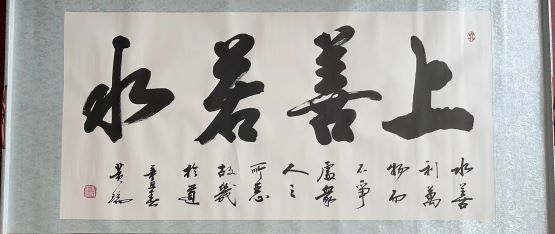 上善若水
水善
利萬
物而
不爭
處衆
人之
所惡
故幾
於道
辛丑春